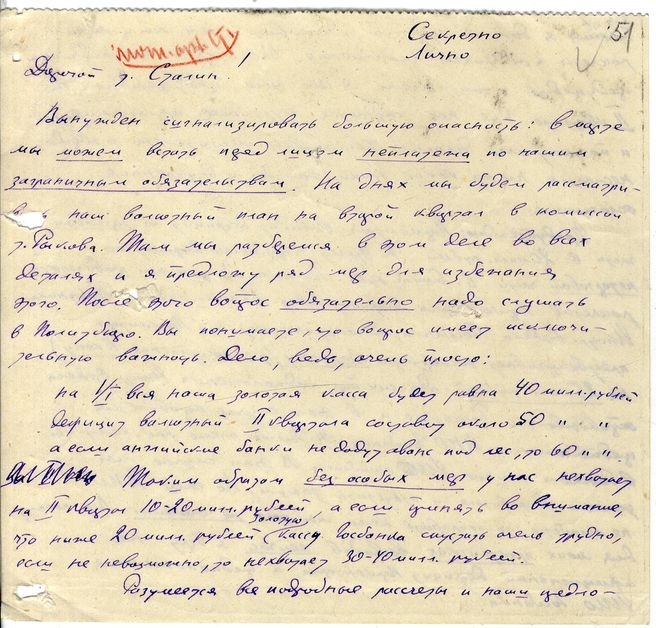 51
Секретно
Лично
Дорогой т. Сталин!
Вынужден сигнализировать большую опасность: в марте
мы можем встать перед лицом неплатежа по нашим
заграничным обязательствам. На днях мы будем рассматри-
наш валютный план на второй квартал в комиссии
т. Рыкова. Там мы разберемся в этом деле во всех
деталях и я предложу ряд мер для избежания
этого. После этого вопрос обязательно надо слушать
в Политбюро. Вы понимаете, что вопрос имеет исключи-
тельную важность. Дело, ведь, очень просто:
на 1/I вся наша золотая касса будет равна 40 мил. рублей
Дефицит валютный II квартала составит около 50 " "
а если английские банки не дадут аванс под лес, то 60 " "
Таким образом без особых мер у нас нехватает
на II квартал 10-20 мил. рублей, а если принять во внимание,
что ниже 20 мил. рублей золотую кассу Госбанка спустить очень трудно,
если не невозможно, то нехватает 30-40 мил. рублей.
Разумеется все подробные рассчеты и наши предло-